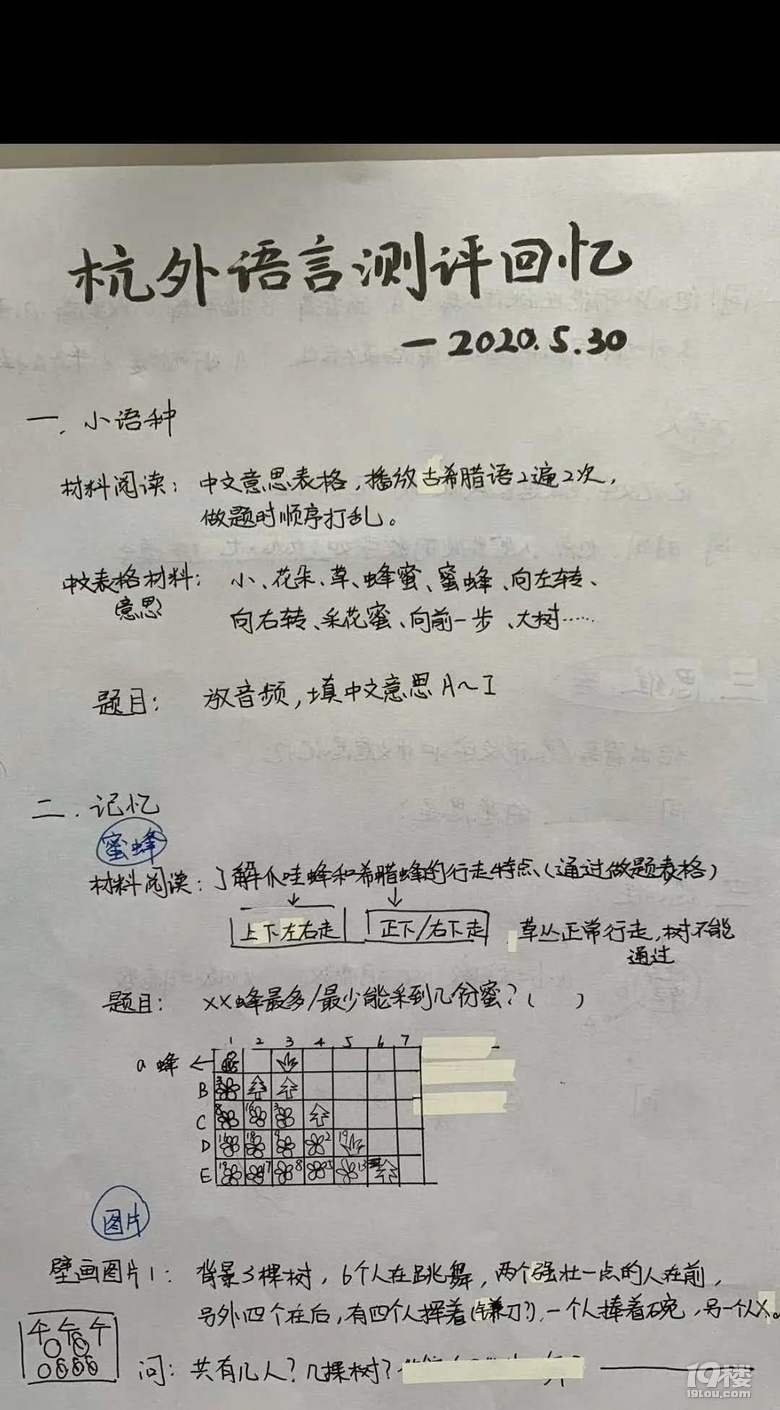 杭外语言测评回忆
—2020.5.30
一. 小语种
材料阅读：中文意思表格，播放古希腊语2遍2次，
做题时顺序打乱。
中文表格材料：小、花朵、草、蜂蜜、蜜蜂、向左转、
意思 向右转、采花蜜、向前一步、大树……
题目：放音频，填中文意思A~I
二. 记忆
蜜蜂
材料阅读：了解爪哇蜂和希腊蜂的行走特点（通过做题表格）
上下左右走 正下/右下走 草丛正常行走，树不能
通过
题目：XX蜂最多/最少能采到几份蜜？（ ）
1 2 3 4 5 6 7
a 蜂
B
C
D
E
图片
壁画图片1：背景3棵树，6个人在跳舞，两个强壮一点的人在前，
另外四个在后，有四个人挥着(镰刀?)，一个人捧着碗，另一个人X。
问：共有几人？几棵树？
19楼
19lou.com